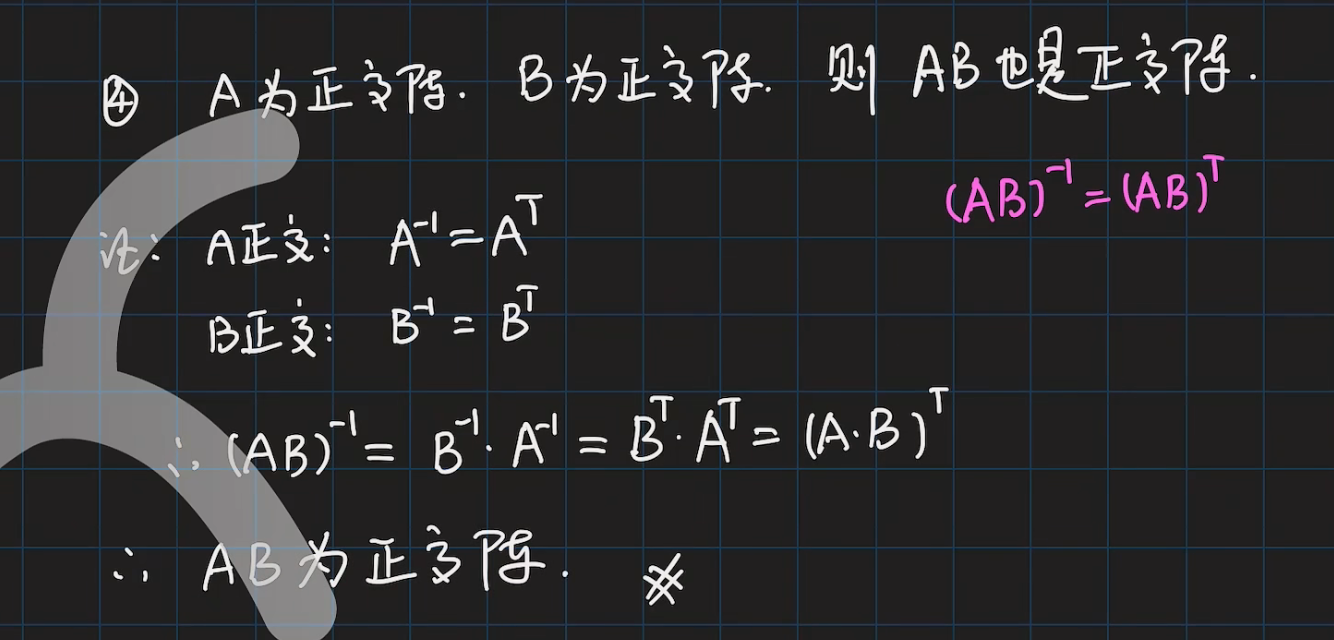 ④ A为正交阵. B为正交阵. 则 AB也是正交阵.
(AB)⁻¹=(AB)ᵀ
证: A正交: A⁻¹=Aᵀ
B正交: B⁻¹=Bᵀ
∴ (AB)⁻¹= B⁻¹·A⁻¹= Bᵀ·Aᵀ= (A·B)ᵀ
∴ AB为正交阵. ※